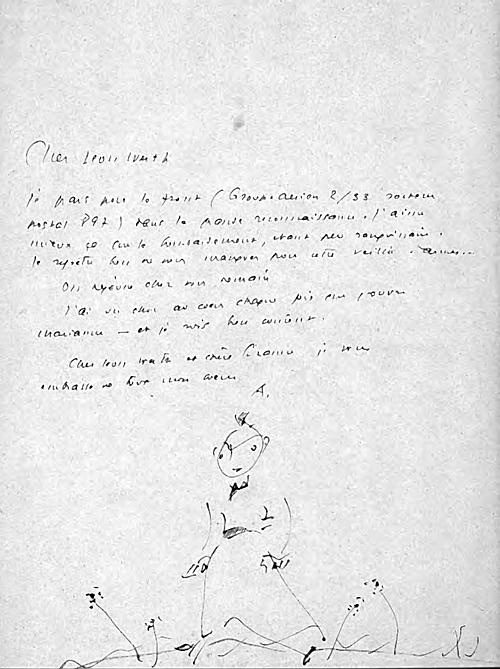 Cher Léon Werth
Je pars pour le front (Groupe aérien 2/33 secteur
postal 897) dans la grande reconnaissance. J'aime
mieux ça que le bombardement, étant peu sanguinaire.
Je regrette bien de vous manquer pour cette
On
J'ai un choc au cœur chaque fois que
— et je suis bien content.
Cher Léon Werth et chère Suzanne je vous
embrasse de tout mon cœur
A.